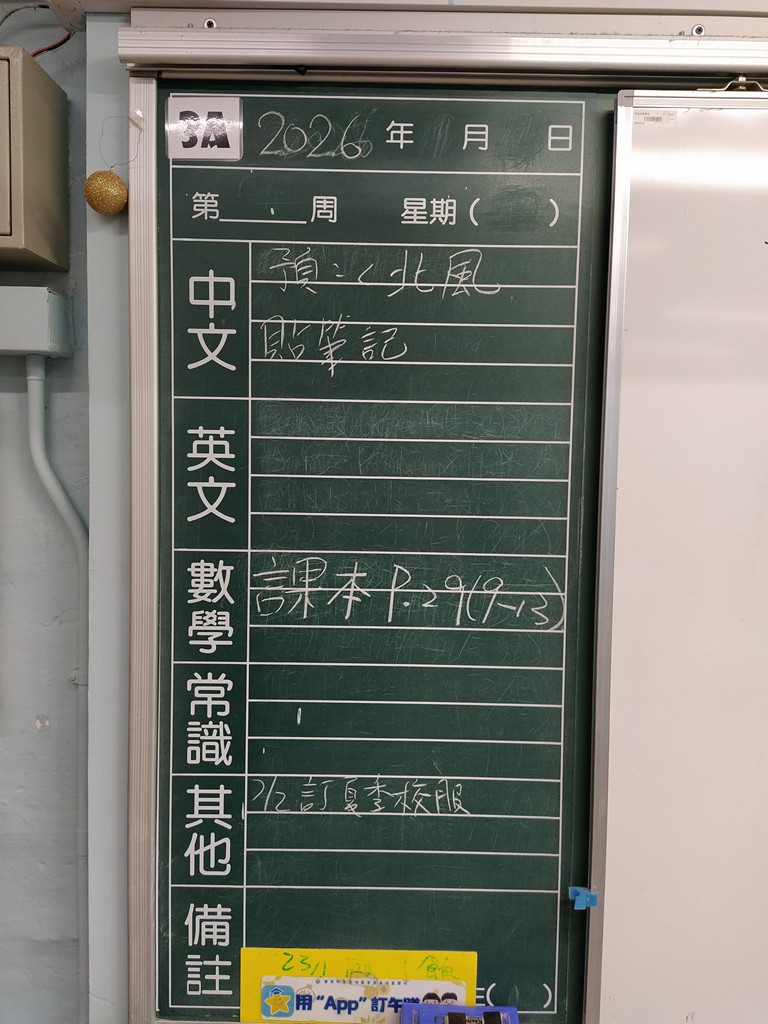 3A 2026 年 月 日
第 周 星期( )
中文
預:<北風
貼筆記
英文
數學
課本 P.29(9-13)
常識
其他
2/2 訂夏季校服
備註
23/1 飯
用“App”訂午膳
( )